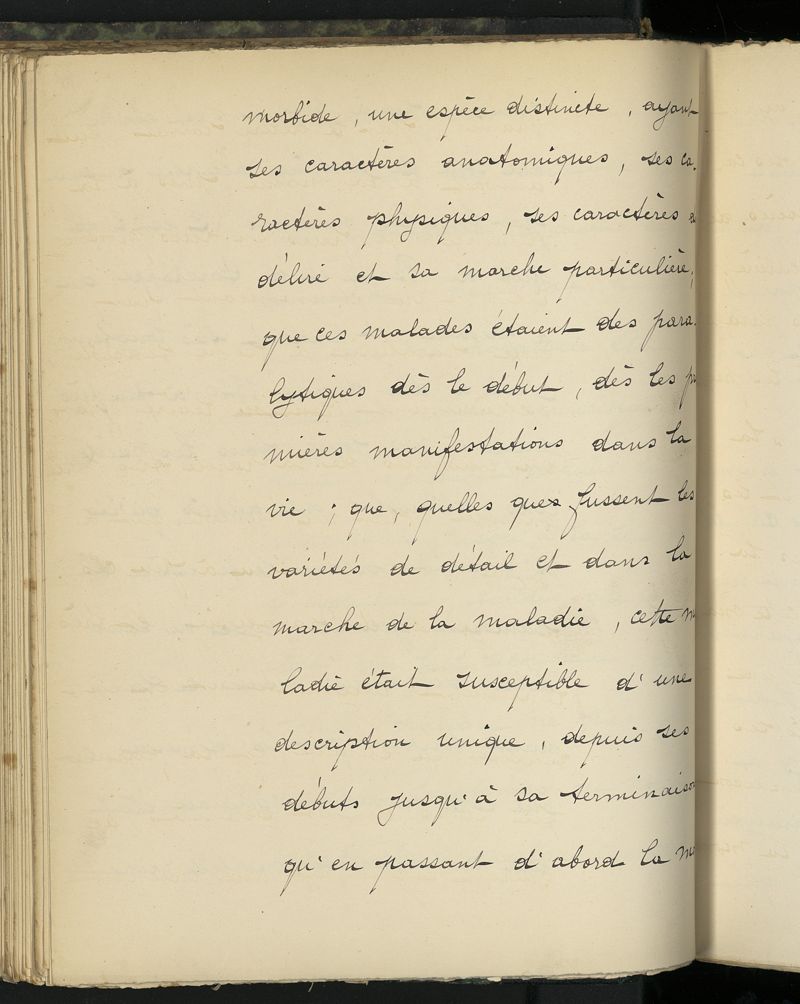 morbide, une espèce distincte, ayant
ses caractères anatomiques, ses ca-
ractères physiques, ses caractères
délire et sa marche particulière,
que ces malades étaient des para-
lytiques dès le début, dès les
mières manifestations dans la
vie ; que, quelles ques fussent les
variétés de détail et dans la
marche de la maladie, cette
ladie était susceptible d'une
description unique, depuis ses
débuts jusqu'à sa terminaison
qu'en passant d'abord la